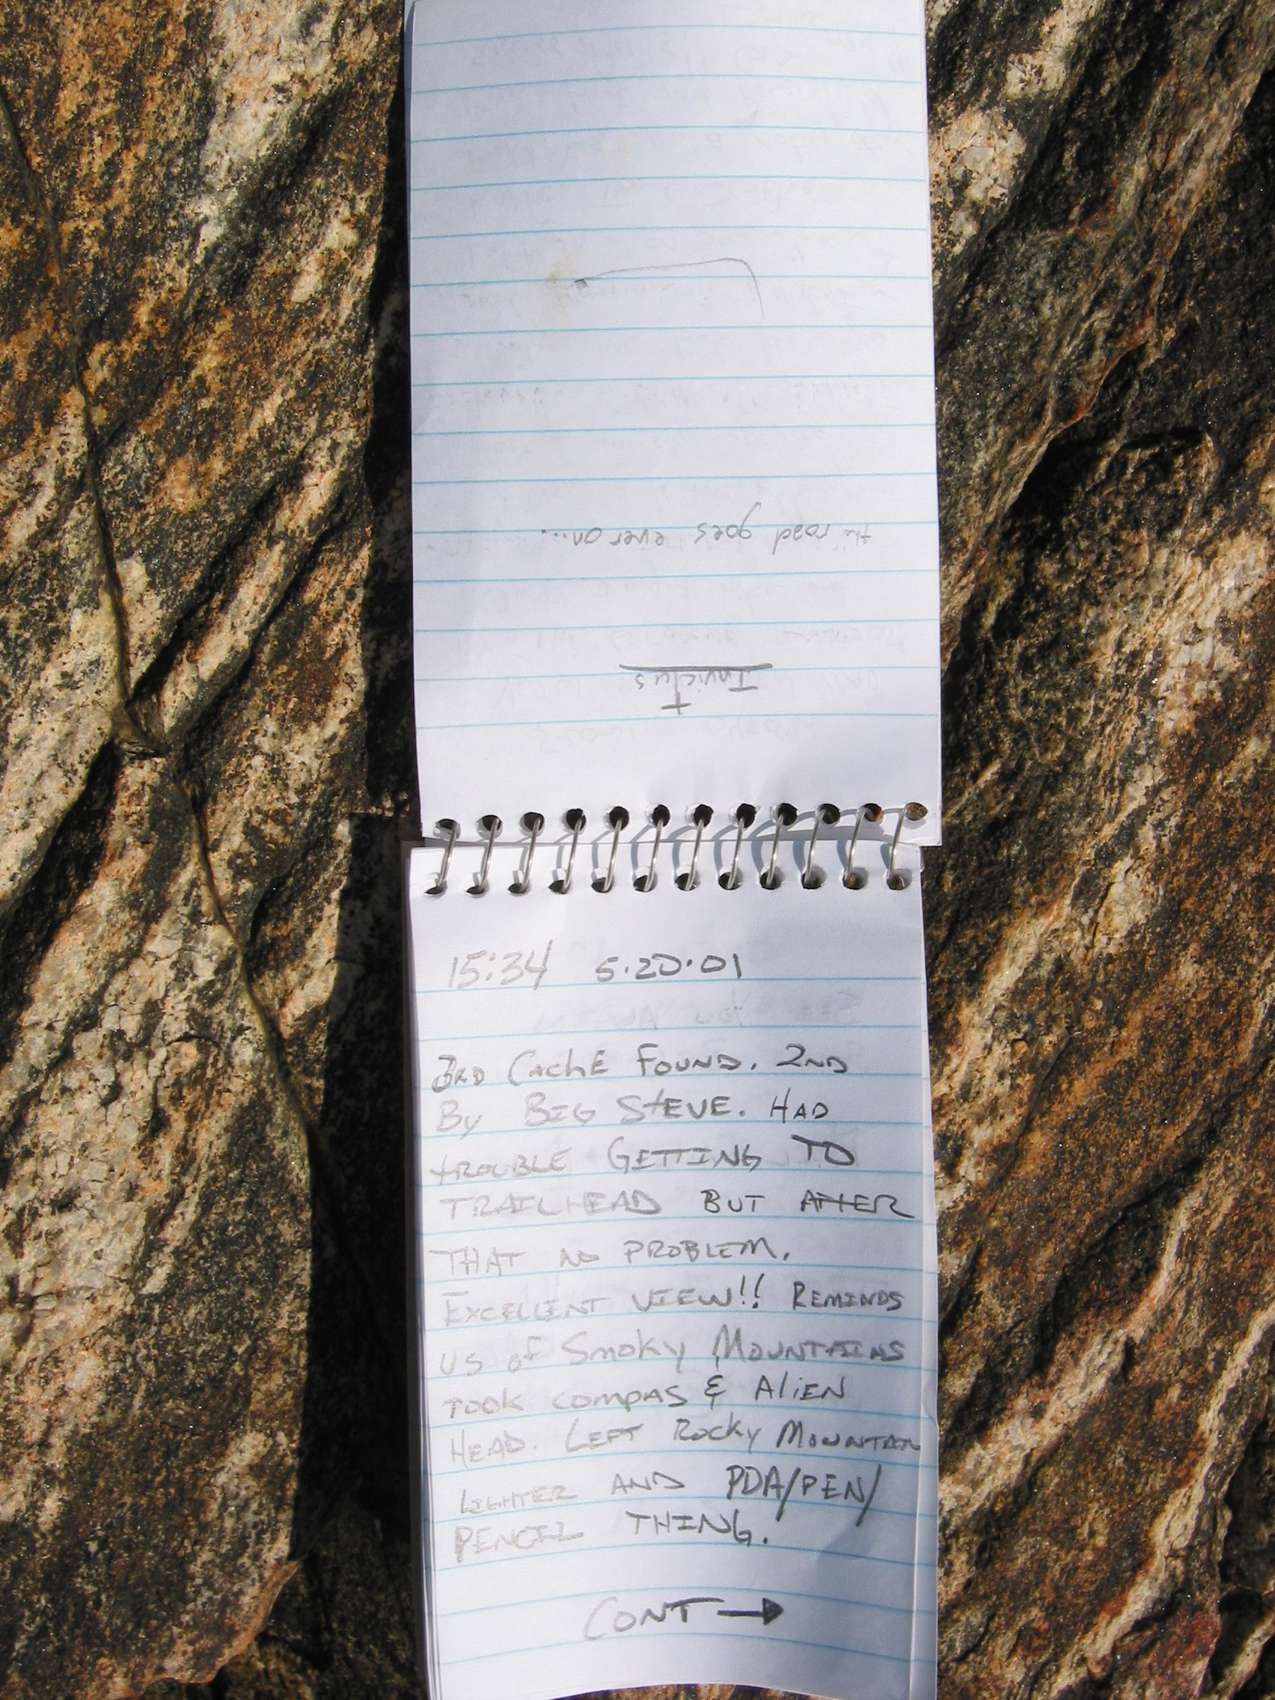 the road goes ever on...
Invictus
15:34 5.20.01
3RD CACHE FOUND. 2ND
By BIG STEVE. HAD
TROUBLE GETTING TO
TRAILHEAD BUT AFTER
THAT NO PROBLEM.
EXCELLENT VIEW!! REMINDS
US OF SMOKY MOUNTAINS
TOOK COMPAS & ALIEN
HEAD. LEFT ROCKY MOUNTAIN
LIGHTER AND PDA/PEN/
PENCIL THING.
CONT →